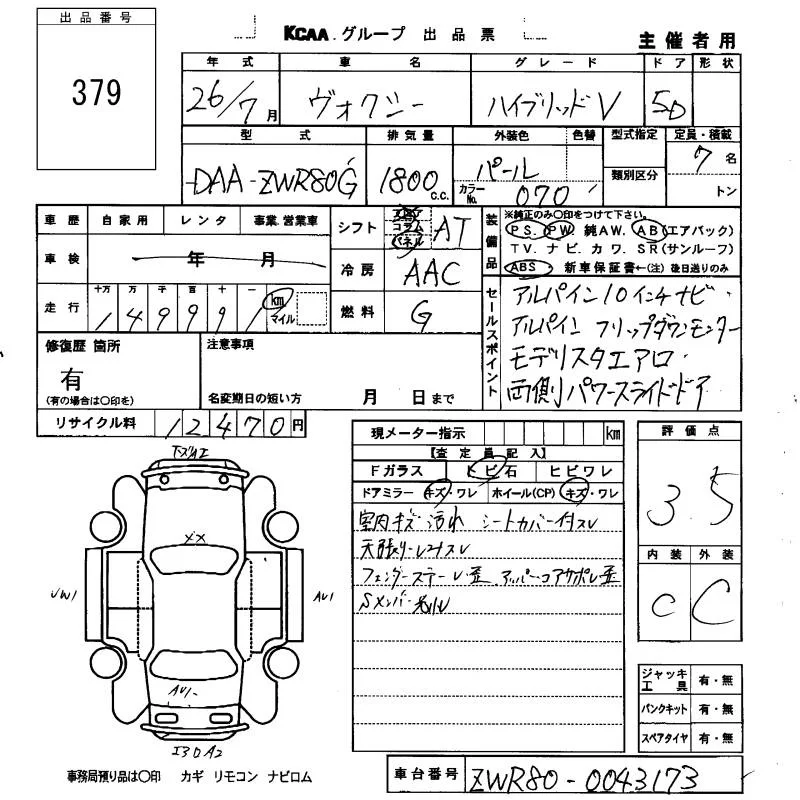 出品番号
379
KCAA グループ 出品票
主催者用
年式 車名 グレード ドア 形状
26/7月 ヴォクシー ハイブリッドV 5D
型式 排気量 外装色 色替 型式指定 定員・積載
DAA-ZWR80G 1800 c.c. パール 7名
カラーNo. 070 類別区分 トン
車歴 自家用 レンタ 事業.営業車
シフト コラム パネル AT
装備品 ※純正のみ〇印をつけて下さい。
PS. PW 純AW. AB(エアバック)
TV. ナビ. カワ. SR(サンルーフ)
ABS 新車保証書←(注)後日送りのみ
車検 年 月
冷房 AAC
走行 十万 万 千 百 十 一 km マイル
149991
燃料 G
セールスポイント
アルパイン10インチナビ・
アルパイン フリップダウンモニター
モデリスタエアロ・
両側パワースライドドア
修復歴 箇所
有
(有の場合は〇印を)
注意事項
名変期日の短い方 月 日まで
リサイクル料 12470円
現メーター指示 km
【査定員記入】
Fガラス トビ石 ヒビワレ
ドアミラー キズ・ワレ ホイール(CP) キズ・ワレ
室内キズ・汚れ シートカバー付
天張り
評価点
3.5
内装 外装
C C
UW1
AU1
AU1
XX
ジャッキ工具 有・無
パンクキット 有・無
スペアタイヤ 有・無
事務局預り品は〇印 カギ リモコン ナビロム
車台番号 ZWR80-0043173